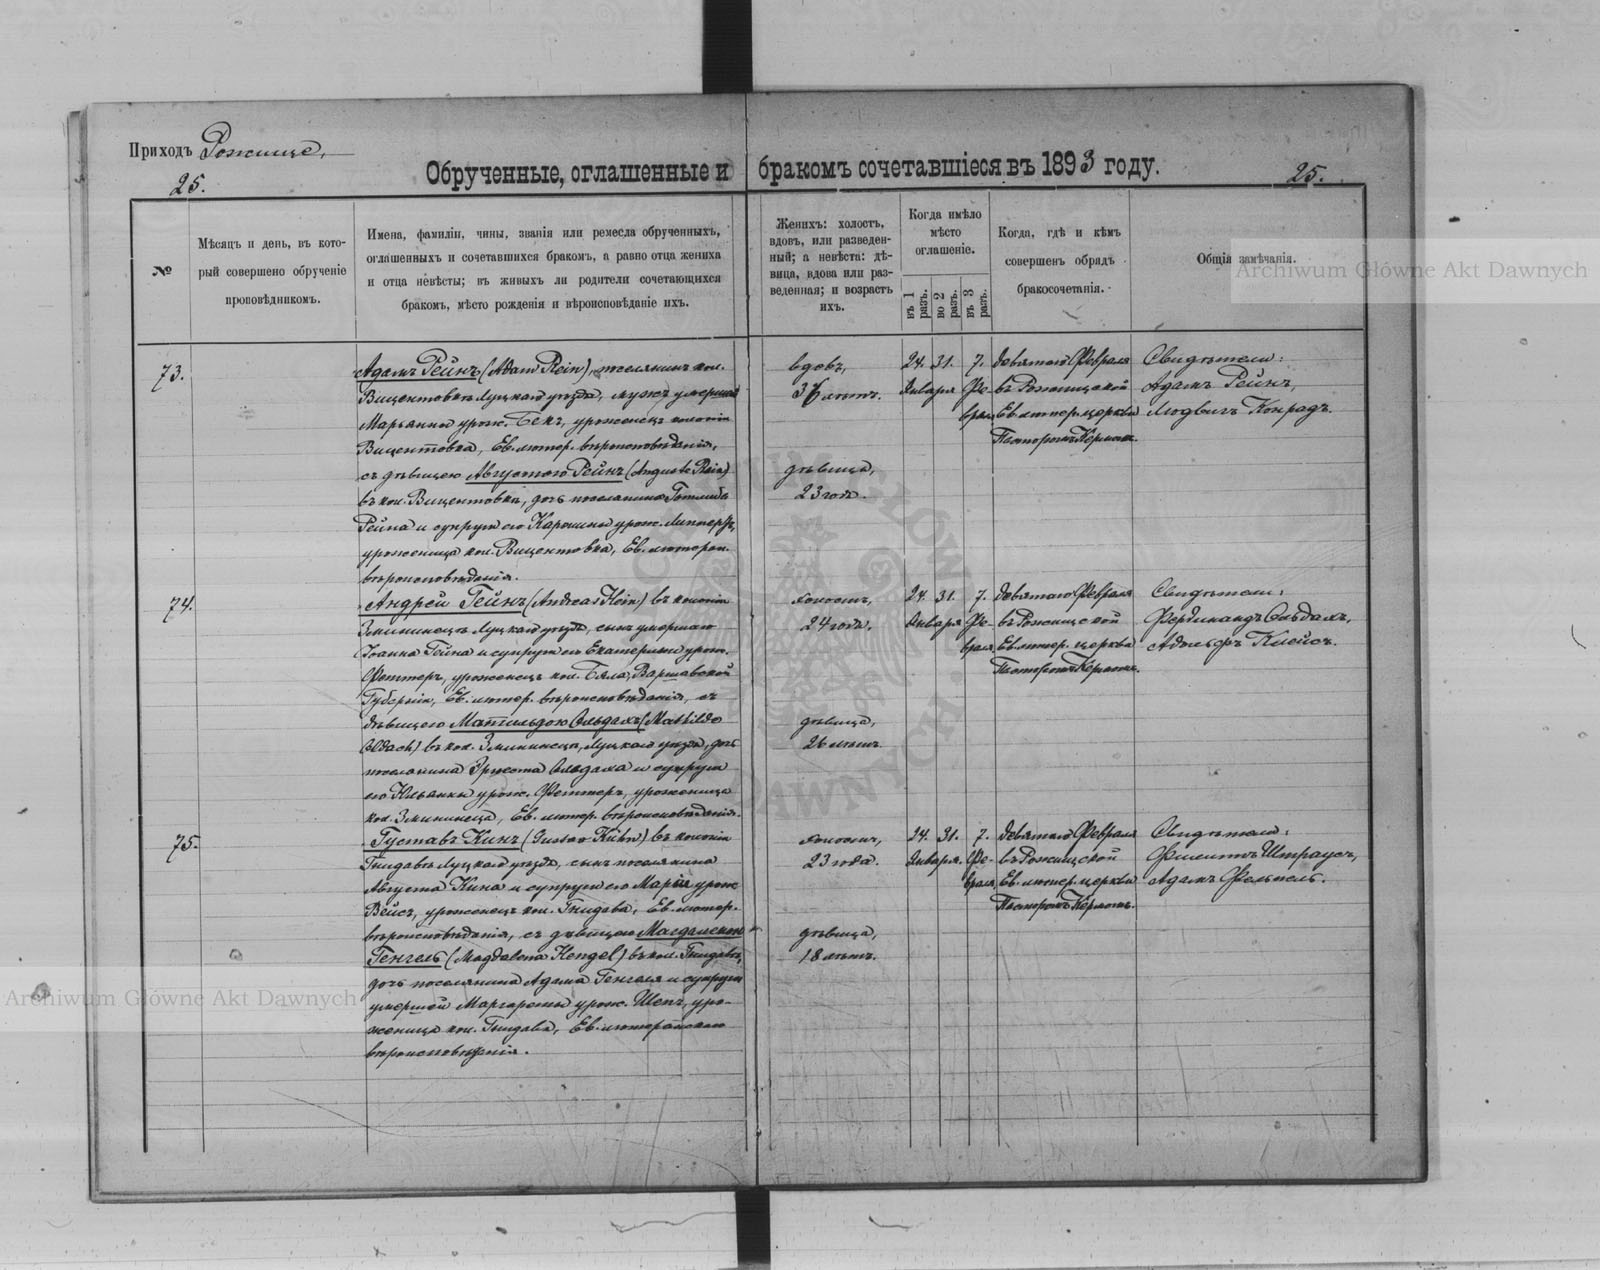 Приходъ Рожище,
25.
Обрученные, оглашенные и бракомъ сочетавшіеся въ 1893 году.
25.
№
Мѣсяцъ и день, въ кото-
рый совершено обрученіе
проповѣдникомъ.
Имена, фамиліи, чины, званія или ремесла обрученныхъ,
оглашенныхъ и сочетавшихся бракомъ, а равно отца жениха
и отца невѣсты; въ живыхъ ли родители сочетающихся
бракомъ, мѣсто рожденія и вѣроисповѣданіе ихъ.
Женихъ: холостъ,
вдовъ, или разведен-
ный; а невѣста: дѣ-
вица, вдова или раз-
веденная; и возрастъ
ихъ.
Когда имѣло
мѣсто
оглашеніе.
въ 1
разъ.
во 2
разъ.
въ 3
разъ.
Когда, гдѣ и кѣмъ
совершенъ обрядъ
бракосочетанія.
Общія замѣчанія.
Archiwum Główne Akt Dawnych
73.
Адамъ Рейнъ (Adam Rein), поселянинъ кол.
Вицентовка Луцкаго уѣзда, мужъ умершей
Марьянны урож. Бекъ, уроженецъ колоніи
Вицентовка, Ев. лютер. вѣроисповѣданія,
съ дѣвицею Августою Рейнъ (Auguste Rein)
въ кол. Вицентовка, дочь поселянина Готлиба
Рейна и супруги его Каролины урож.
уроженица кол. Вицентовка, Ев. лютеран.
вѣроисповѣданія.
вдовъ,
36 лѣтъ.
дѣвица,
23 года.
24. 31. 7.
Января Фе-
враля
девятаго Февраля
въ Рожищской
Ев. лютер. церкви
Пасторомъ Керномъ.
Свидѣтели:
Адамъ Рейнъ,
Людвигъ Конрадъ.
74.
Андрей Гейнъ (Andreas Hein) въ колоніи
Змининецъ Луцкаго уѣзда, сынъ умершаго
Іоанна Гейна и супруги его Екатерины урож.
Феттеръ, уроженецъ кол. Бяла, Варшавской
Губерніи, Ев. лютер. вѣроисповѣданія, съ
дѣвицею Матильдою Ольдахъ (Mathilde
Oldach) въ кол. Змининецъ, Луцкаго уѣзда, дочь
поселянина Эрнста Ольдаха и супруги
его Юліанны урож. Феттеръ, уроженица
кол. Змининецъ, Ев. лютер. вѣроисповѣданія.
холостъ,
24 года.
дѣвица,
26 лѣтъ.
24. 31. 7.
Января Фе-
враля
девятаго Февраля
въ Рожищской
Ев. лютер. церкви
Пасторомъ Керномъ.
Свидѣтели:
Фердинандъ Ольдахъ,
Адольфъ Клейсъ.
75.
Густавъ Кинъ (Gustav Kühn) въ колоніи
Гнидавѣ Луцкаго уѣзда, сынъ поселянина
Августа Кина и супруги его Маріи урож.
Вейсъ, уроженецъ кол. Гнидава, Ев. лютер.
вѣроисповѣданія, съ дѣвицею Магдаленою
Генгель (Magdalena Hengel) въ кол. Гнидавѣ,
дочь поселянина Адама Генгеля и супруги
умершей Маргареты урож. Шепъ, уро-
женица кол. Гнидава, Ев. лютеранскаго
вѣроисповѣданія.
холостъ,
23 года.
дѣвица,
18 лѣтъ.
24. 31. 7.
Января. Фе-
враля
девятаго Февраля
въ Рожищской
Ев. лютер. церкви
Пасторомъ Керномъ.
Свидѣтели:
Филиппъ Штраусъ,
Адамъ
Archiwum Główne Akt Dawnych